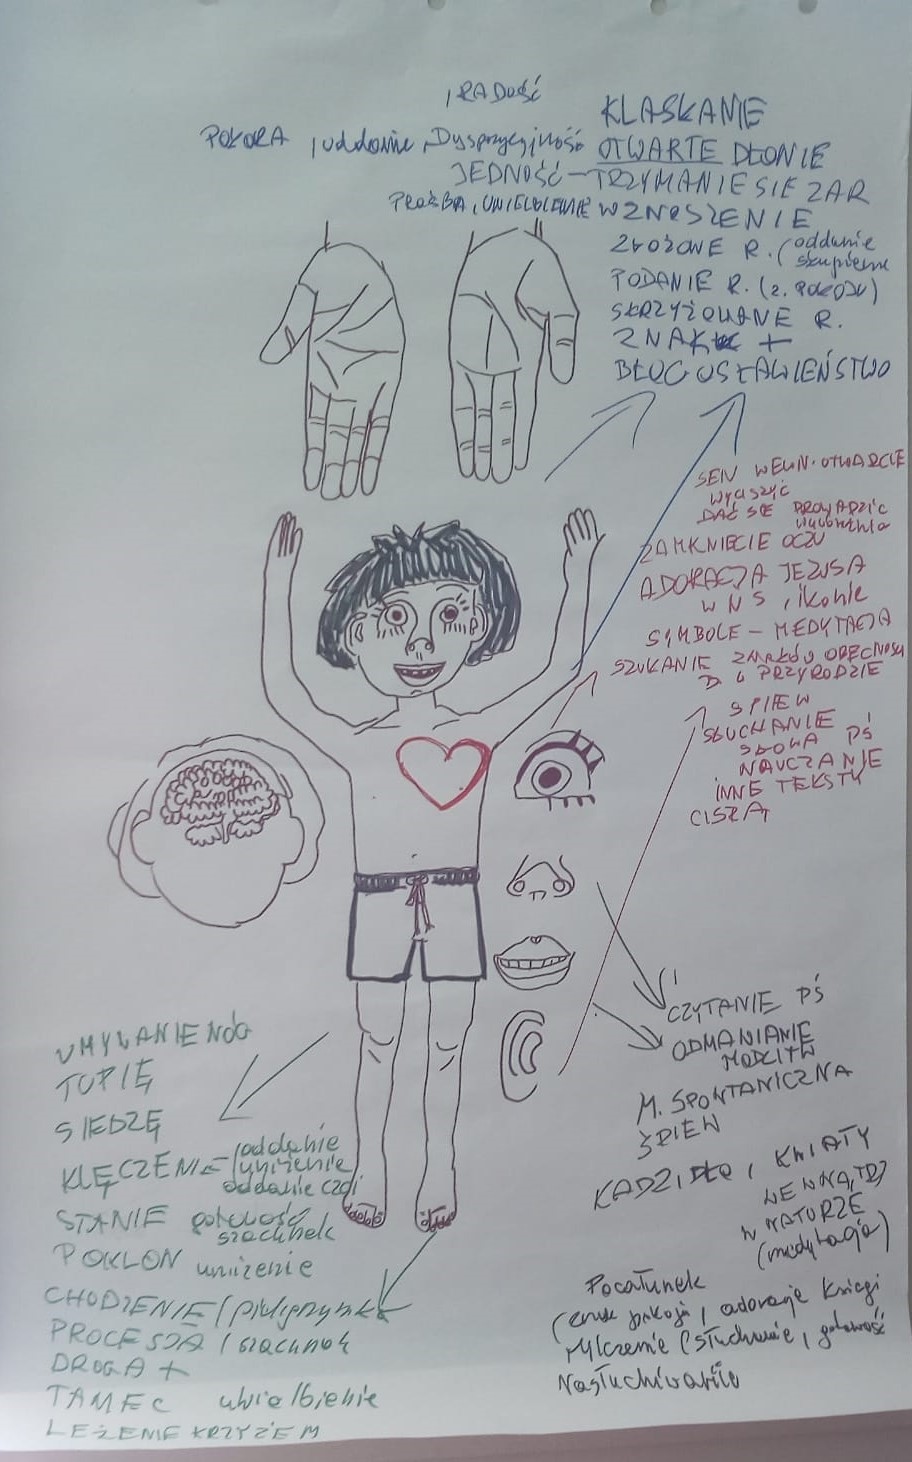 RADOŚĆ
POKORA oddanie, Dyspozycyjność
KLASKANIE
OTWARTE DŁONIE
JEDNOŚĆ – TRZYMANIE SIE ZA R
PROŚBA, UWIELBIENIE WZNOSZENIE
ZŁOŻONE R. (oddanie
skupienie
PODANIE R. (z. POKOJU)
SKRZYŻOWANE R.
ZNAK +
BŁOGOSŁAWIEŃSTWO
SEN WEWN. OTWARCIE
WYCISZYĆ
DAĆ SIE PROWADZIĆ
ZAMKNIĘCIE OCZU
ADORACJA JEZUSA
W N S , ikonie
SYMBOLE – MEDYTACJA
SZUKANIE ZNAKÓW OBECNOŚCI
W PRZYRODZIE
SPIEW
SŁUCHANIE
SŁOWA PŚ
NAUCZANIE
INNE TEKSTY
CISZA
CZYTANIE PŚ
ODMAWIANIE
MODLITW
M. SPONTANICZNA
ŚPIEW
KADZIDŁO, KWIATY
WEWNĄTRZ
W NATURZE
(medytacja)
Pocałunek
(znak pokoju, adoracja Księgi
Milczenie (słuchanie, gotowość
Nasłuchiwanie
UMYWANIE NÓG
TUPIĘ
SIEDZĘ
KLĘCZENIE – oddanie
uniżenie
oddanie czci
STANIE gotowość
szacunek
POKŁON uniżenie
CHODZENIE / pielgrzymka
PROCESJA / szacunek
DROGA +
TANIEC uwielbienie
LEŻENIE KRZYŻEM